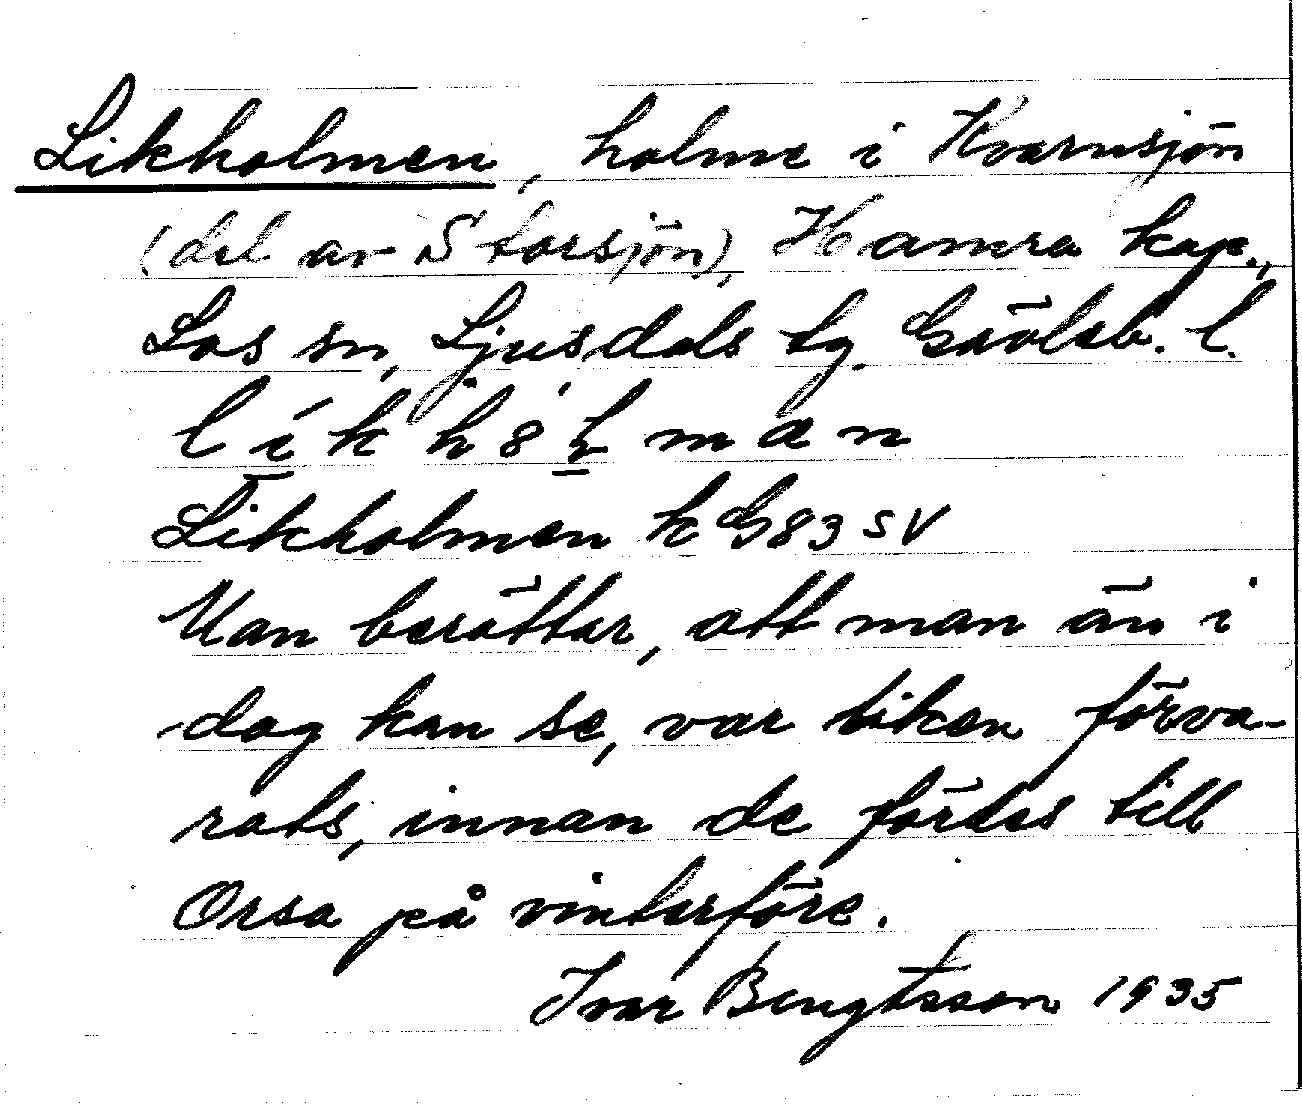 Likholmen, holme i Kvarnsjön
(del av Storsjön), Hamra kap.,
Los sn, Ljusdals tg. Gävleb. l.
Likholmen k G83 SV
Man berättar, att man än i
dag kan se, var liken förva-
rats, innan de fördes till
Orsa på vinterföre.
Ivar Bengtsson 1935